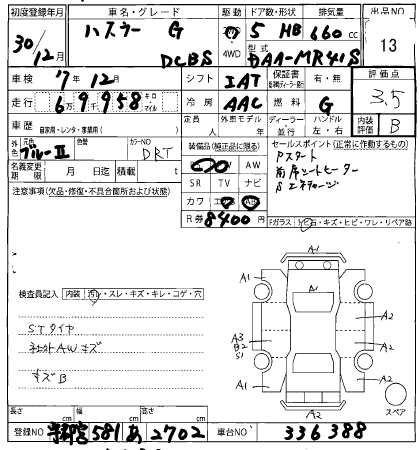 初度登録年月 車名・グレード 駆動 ドア数・形状 排気量 出品NO
30/12月 ハスラー G DCBS 4WD 5 HB 660cc 13
型式 DAA-MR41S
車検 7年12月 シフト IAT 保証書 有・無 評価点
走行 6万9千958 キロ マイル 冷房 AAC 燃料 G 3.5
車歴 自家用・レンタ・事業用( ) 定員 人 外車モデル 年 ディーラー 並行 ハンドル 左・右 内装評価 B
外色 元色 ブルーⅡ 色替 カラーNO DRT 装備品(純正品に限る) セールスポイント(正常に作動するもの)
名義変更期限 月 日迄 積載 t AW Pスタート
SR TV ナビ 前席シートヒーター
注意事項(欠品・修復・不具合箇所および状態) カワ Sエネチャージ
R券 8400円 Fガラス 石・キズ・ヒビ・ワレ・リペア跡
A1
A1 A1 A1
検査員記入 内装 汚・スレ・キズ・キレ・コゲ・穴
A2
STタイヤ
A3 B2 S1 A2
AWキズ
キズB
A1 A1 A2
A2 スペア
長さ cm 幅 cm 高さ cm
登録NO 宇都宮 581 あ 2702 車台NO 336388